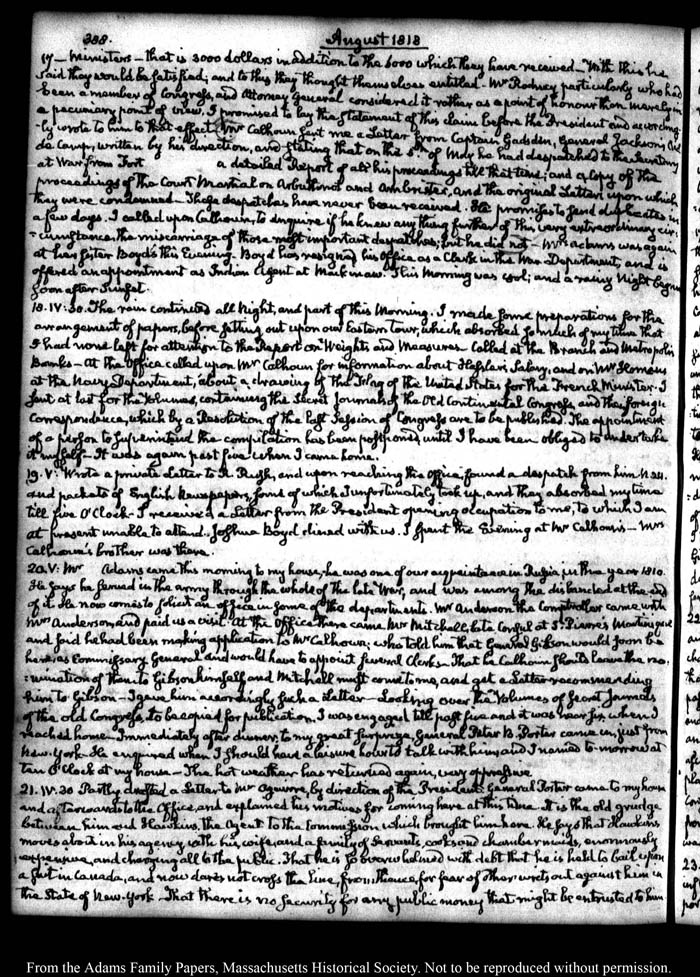 388.
August 1818
17 — Ministers — that is 3000 dollars in addition to the 6000 which they have received — With this he
said they would be satisfied; and to this they thought themselves entitled — Mr Rodney particularly who had
been a member of Congress, and Attorney General considered it rather as a point of honour than merely in
a pecuniary point of view. I promised to lay the statement of this claim before the President and according-
ly wrote to him to that effect. Mr Calhoun sent me a Letter from Captain Gadsden, General Jackson's Aid
de Camp, written by his direction, and stating that on the 5th of May he had despatched to the Secretary
at War, from Fort a detailed Report of all his proceedings till that time; and a copy of the
proceedings of the Court Martial on Arbuthnot and Ambrister, and the original Letters upon which
they were condemned — These despatches have never been received. He promises to send duplicates in
a few days. I called upon Calhoun, to enquire if he knew any thing further of this very extraordinary cir-
:cumstance, the miscarriage of those most important despatches; but he did not — Mrs Adams was again
at her Sister Boyd's this Evening. Boyd has resigned his Office as a Clerk in the War Department, and is
offered an appointment as Indian Agent at Mackinaw. This Morning was cool; and a rainy Night began
soon after Sunset.
18. IV:30. The rain continued all Night, and part of this Morning. I made some preparations for the
arrangement of papers, before setting out upon our Eastern tour, which absorbed so much of my time that
I had none left for attention to the Report on Weights and Measures — Called at the Branch and Metropolis
Banks — At the Office called upon Mr Calhoun for information about Hassler's Salary, and on Mr Homans
at the Navy Department, about a drawing of the Flag of the United States for the French Minister. I
sent at last for the Volumes, containing the Secret Journals of the Old Continental Congress, and the foreign
Correspondence, which by a Resolution of the last Session of Congress are to be published. The appointment
of a person to superintend the compilation has been postponed, until I have been obliged to undertake
it myself — It was again past five when I came home.
19. V: Wrote a private Letter to R. Rush, and upon reaching the Office, found a despatch from him N. 24.
and packets of English Newspapers, some of which I unfortunately took up, and they absorbed my time
till five O'Clock — I received a Letter from the President opening occupation to me, to which I am
at present unable to attend. Joshua Boyd dined with us. I spent the Evening at Mr Calhoun's — Mrs
Calhoun's brother was there.
20. V: Mr Adams came this morning to my house, he was one of our acquaintance in Russia, in the year 1810.
He says he served in the army through the whole of the late War, and was among the disbanded at the end
of it. He now comes to solicit an office in some of the departments. Mr Anderson the Comptroller came with
Mrs Anderson, and paid us a visit. At the Office there came Mr Mitchell, late Consul at St Pierre's Martinique
and said he had been making application to Mr Calhoun; who told him that General Gibson would soon be
here, as Commissary General and would have to appoint several Clerks — That he Calhoun should leave the no-
:mination of them to Gibson himself, and Mitchell must come to me, and get a Letter recommending
him to Gibson — I gave him accordingly such a Letter — Looking over the Volumes of Secret Journals
of the old Congress, to be copied for publication, I was engaged till past five and it was near six, when I
reached home — Immediately after dinner, to my great surprize, General Peter B. Porter came in, just from
New-York. He enquired when I should have a leisure hour to talk with him, and I named to-morrow at
ten O'Clock at my house — The hot weather has returned again, very oppressive
21. IV:30 Partly drafted a Letter to Mr Aguirre, by direction of the President. General Porter came to my house
and afterwards to the Office, and explained his motives for coming here at this time. It is the old grudge
between him and Hawkins, the Agent to the Commission which brought him here. He says that Hawkins
moves about in his agency, with his wife, and a family of servants, cooks and chambermaids, enormously
expensive, and charging all to the public. That he is so overwhelmed with debt that he is held to bail upon
a suit in Canada, and now dares not cross the Line, from thence, for fear of other writs out against him in
the State of New-York — That there is no security for any public money that might be entrusted to him
From the Adams Family Papers, Massachusetts Historical Society. Not to be reproduced without permission.